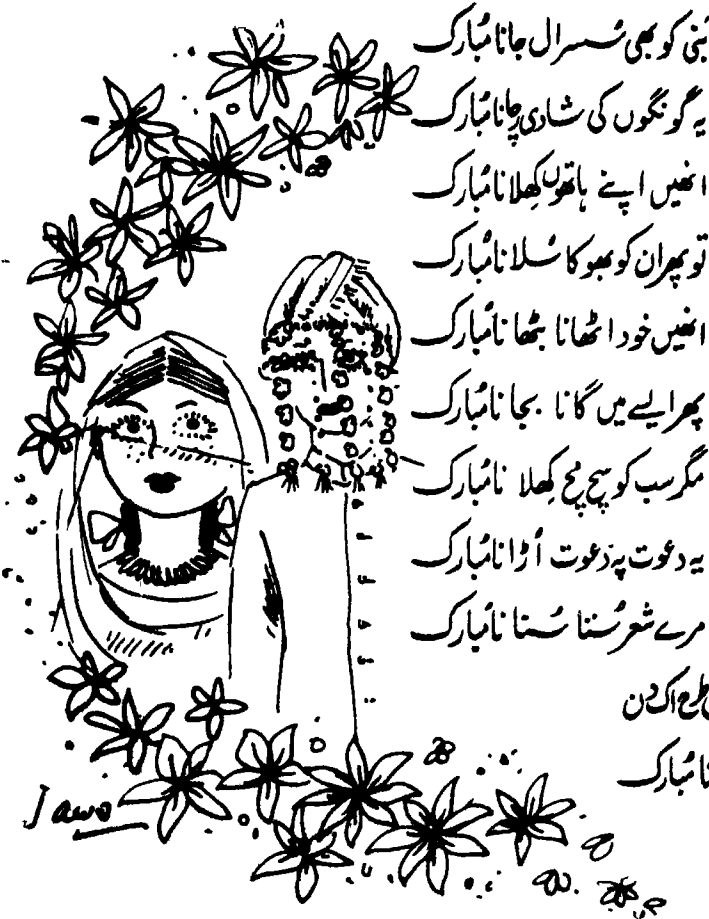 بنی کو بھی سُسرال جانا مُبارک
یہ گونگوں کی شادی رچانا مُبارک
انھیں اپنے ہاتھوں کِھلانا مُبارک
تو پھر ان کو بھوکا سُلانا مُبارک
انھیں خود اٹھانا بٹھانا مُبارک
پھر ایسے میں گانا بجانا مُبارک
مگر سب کو سچ مچ کِھلانا مُبارک
یہ دعوت پہ دَعوت اُڑانا مُبارک
مرے شعر سُننا سُنانا مُبارک
طرح اک دن
نا مُبارک